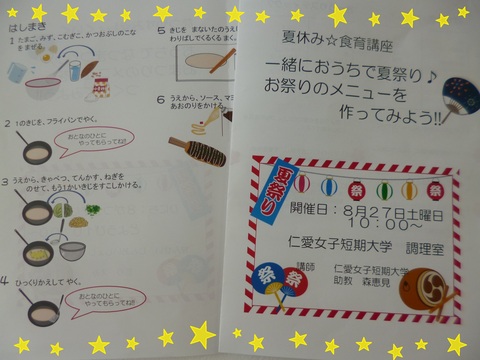 はしまき
1 たまご、みず、こむぎこ、かつおぶしのこな
をまぜる。
2 1のきじを、フライパンでやく。
おとなのひとに
やってもらってね!!
3 うえから、きゃべつ、てんかす、ねぎを
のせて、もう1かいきじをすこしかける。
4 ひっくりかえして やく。
おとなのひとに
やってもらってね!!
5 きじを まないたのうえ
わりばしでくるくる まく。
6 うえから、ソース、マヨ
あおのりをかける。
夏休み☆食育講座
一緒におうちで夏祭り♪
お祭りのメニューを
作ってみよう!!
夏祭り
祭
祭
開催日:8月27日土曜日
10:00~
仁愛女子短期大学 調理室
講師 仁愛女子短期大学
助教 森恵見
祭
祭